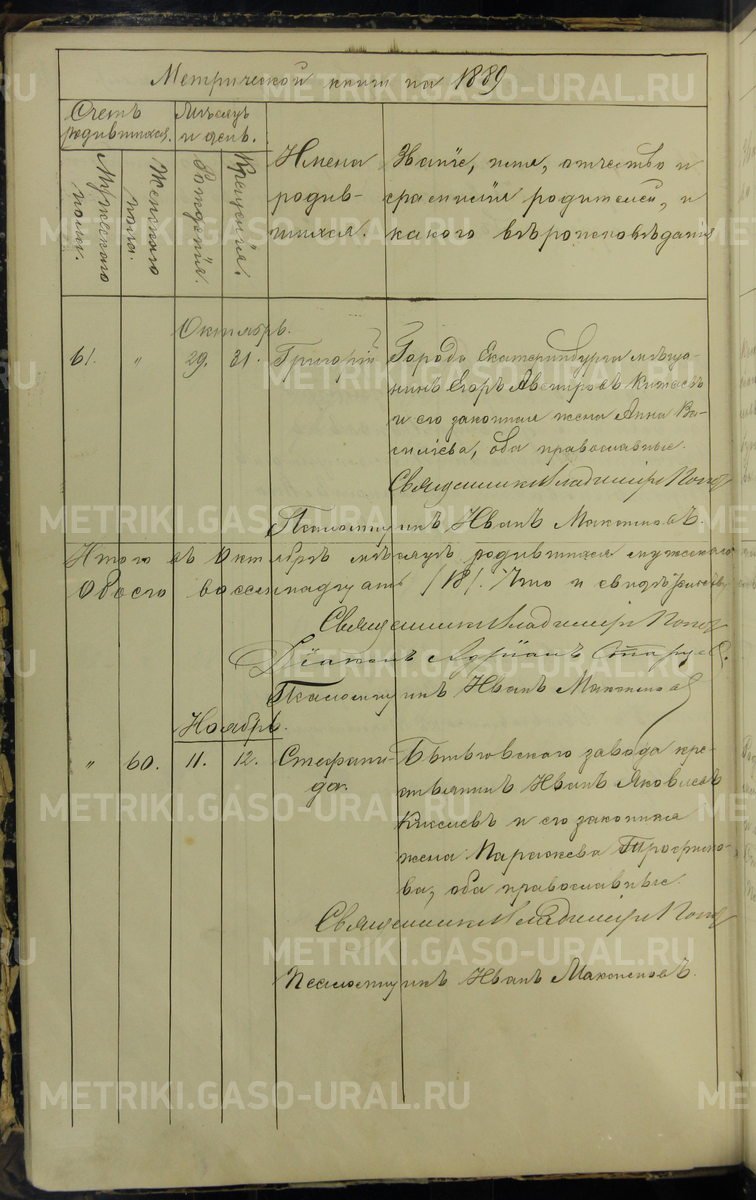 Метрической книги на 1889
Счетъ родившихся.
Мужескаго пола.
Женскаго пола.
Месяцъ и день.
Рожденія.
Крещенія.
Имена родившихся.
Званіе, имя, отчество и
фамилія родителей, и
какого вѣроисповѣданія
Октябрь.
61. " 29. 31. Григорій
Города Екатеринбурга мѣща-
нинъ Егоръ Авенировъ
и его законная жена Анна Ва-
сильева, оба православные.
Священникъ Владиміръ Попов
Псаломщикъ Иванъ Максимовъ.
Итого въ Октябрѣ мѣсяцѣ родившихся мужескаго
обоего восемнадцать /18/. Что и
Священникъ Владиміръ Попов
Діаконъ Адріанъ
Псаломщикъ Иванъ Максимов
Ноябрь.
" 60. 11. 12. Стефани-
да.
заводa кре-
стьянинъ Иванъ Яковлевъ
Киселевъ и его законная
жена Параскева Трофимо-
ва, оба православные.
Священникъ Владиміръ Попов
Псаломщикъ Иванъ Максимовъ.
METRIKI.GASO-URAL.RU